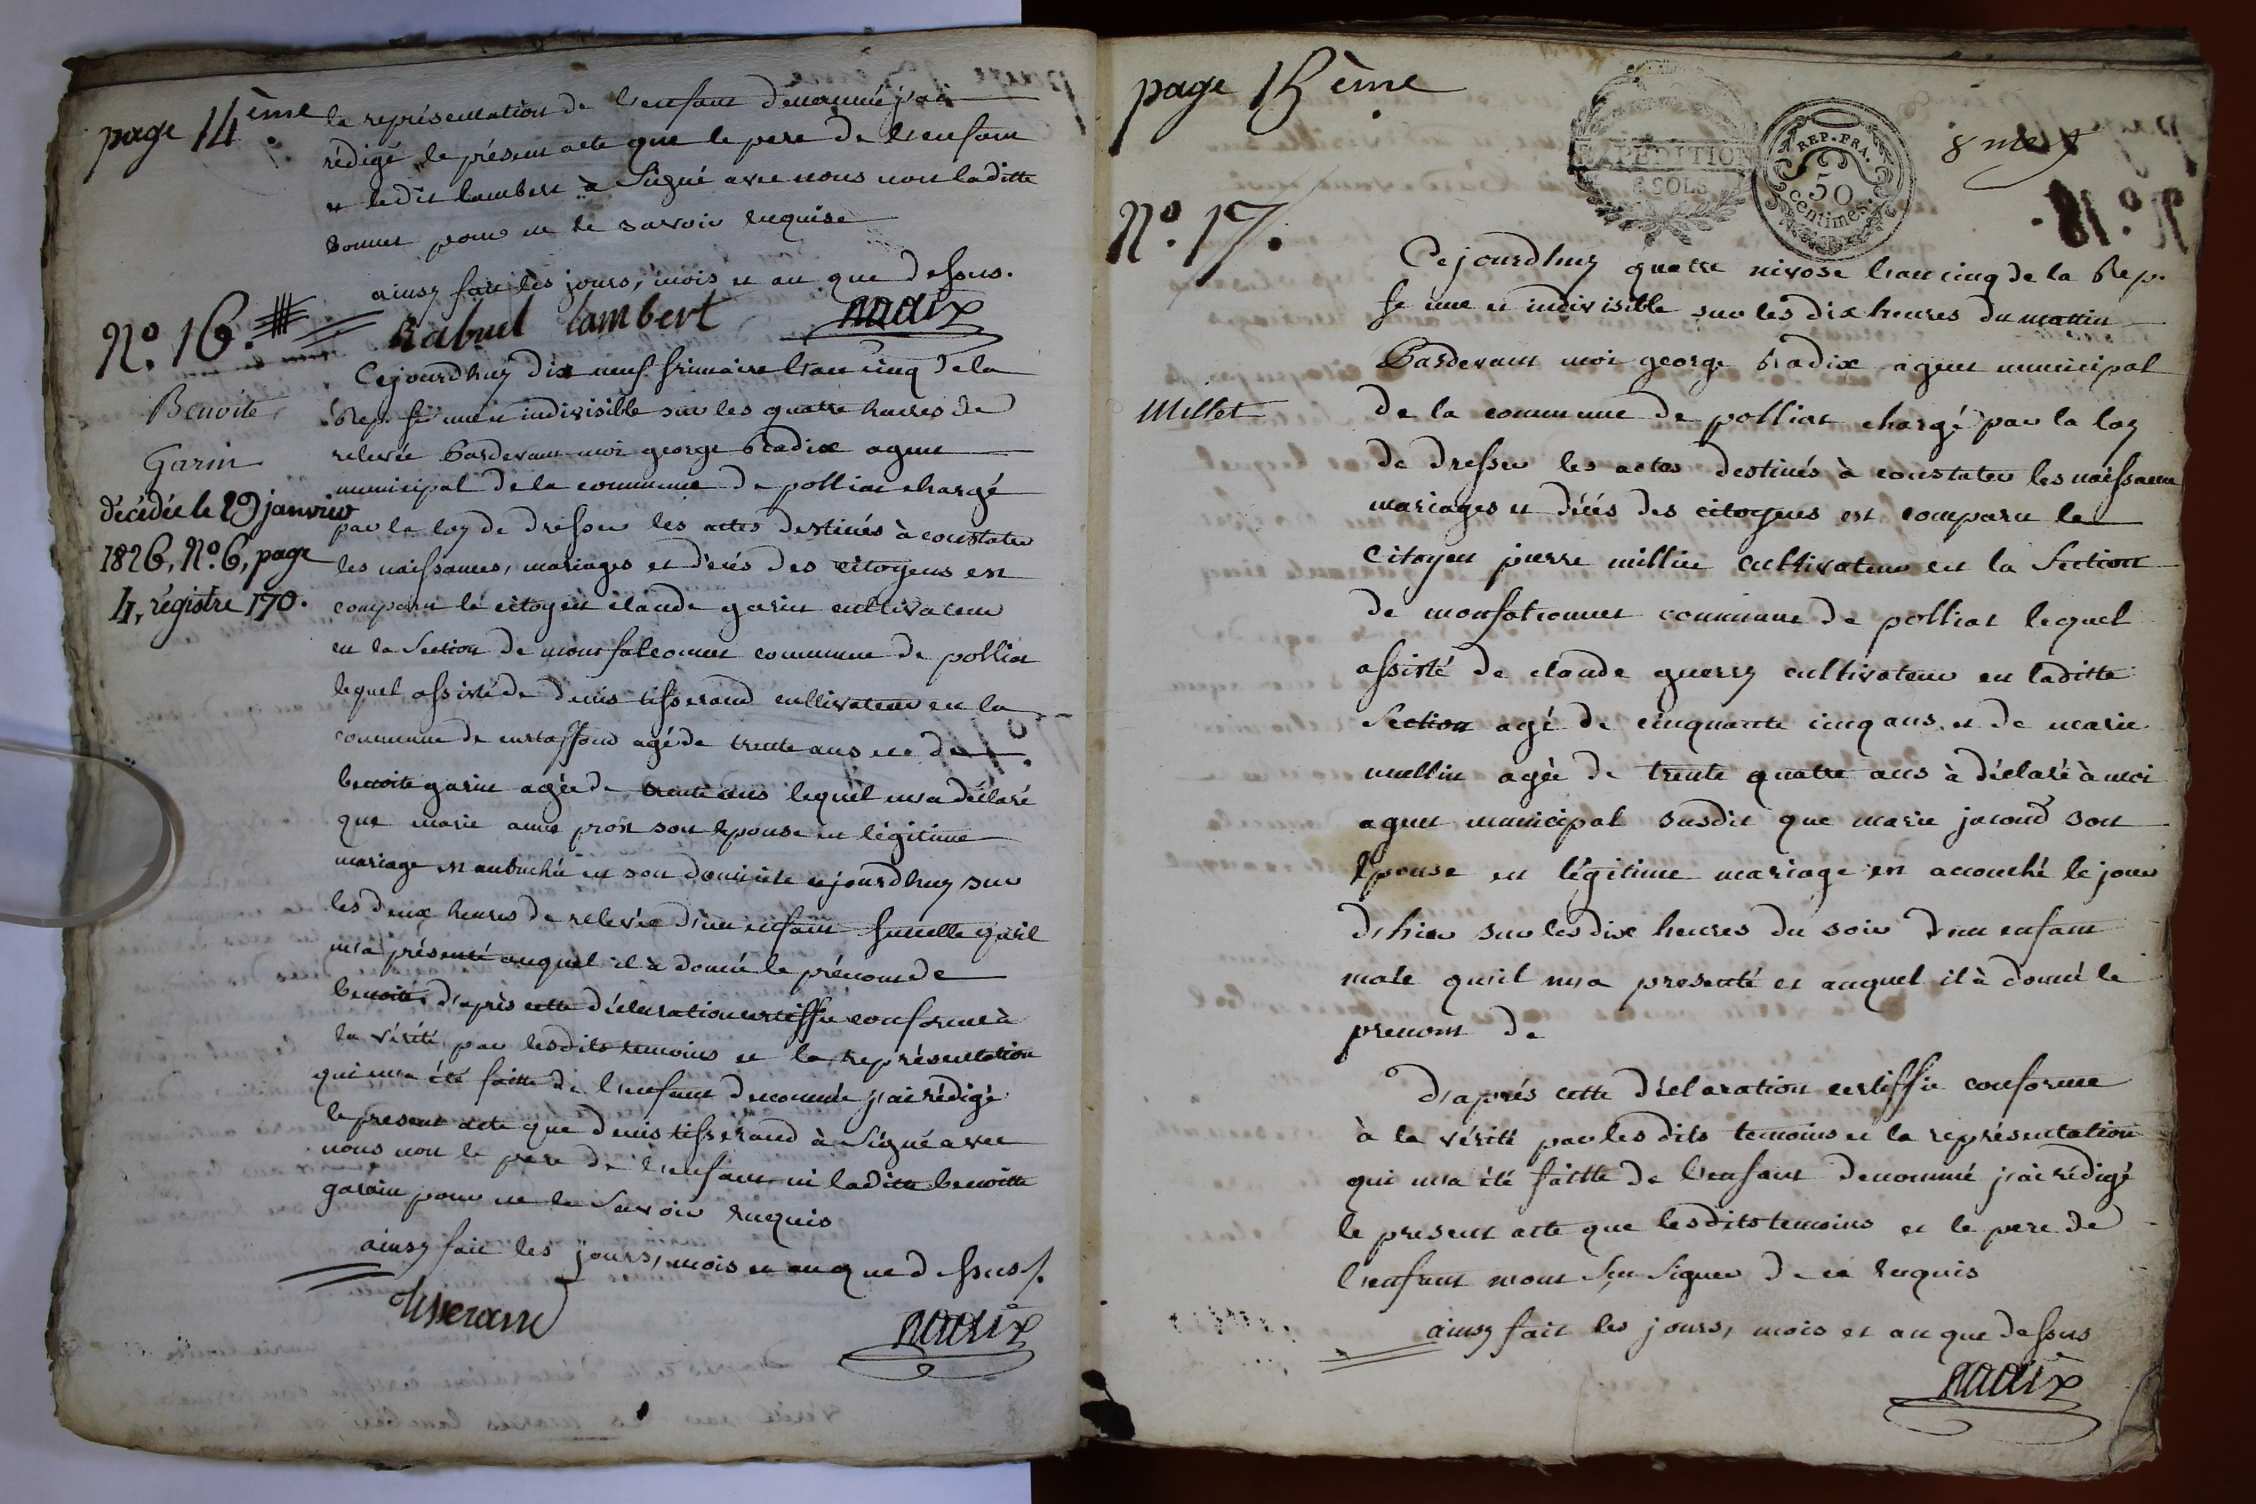 page 14ème
la représentation de l'enfant dénommé j'ai
rédigé le présent acte que le pere de l'enfant
et ledit lambert à signé avec nous non laditte
bonnet pour ne le savoir requise
ainsy fait les jours, mois et an que dessus.
Rabuel lambert Radix
No. 16.
Benoite
Garin
décédée le 29 janvier
1826, No. 6, page
4, régistre 170.
Cejourdhuy dix neuf frimaire l'an cinq de la
Rep. fse une et indivisible sur les quatre heures de
relevée Pardevant moi george Radix agent
municipal de la commune de polliat chargé
par la loy de dresser les actes destinés à constater
les naissances, mariages et décés des citoyens est
comparu le citoyen claude garin cultivateur
en la Section de monfalconnet commune de polliat
lequel assisté de denis tisserand cultivateur en la
commune de curtaffond agé de trente ans et de
benoite garin agée de trente ans lequel m'a déclaré
que marie anne prost son epouse en légitime
mariage est accouchée en son domicile cejourdhuy sur
les deux heures de relevée d'un enfant femelle qu'il
m'a présenté auquel il à donné le prénom de
benoite, d'après cette déclaration certiffié conforme à
la vérité par lesdits temoins et la représentation
qui m'a été faitte de l'enfant denommée j'ai rédigé
le present acte que denis tisserand à Signé avec
nous non le pere de l'enfant ni laditte benoitte
garin pour ne le Savoir requis
ainsy fait les jours, mois et an que dessus /.
tisserand Radix
page 15ème
EXPEDITION
SOLS
REP. FRA.
50
centimes
No. 17.
Millet
Cejourdhuy quatre nivose l'an cinq de la Rep.
fse une et indivisible sur les dix heures du mattin
Pardevant moi george Radix agent municipal
de la commune de polliat chargé par la loy
de dresser les actes destinés à constater les naissances
mariages et décés des citoyens est comparu le
Citoyen pierre millet cultivateur en la Section
de monfalconnet commune de polliat lequel
assisté de claude guerry cultivateur en laditte
Section agé de cinquante cinq ans et de marie
agée de trente quatre ans à déclaré à moi
agent municipal susdit que marie jacond son
epouse en légitime mariage est accouché le jour
d'hier sur les dix heures du soir d'un enfant
male qu'il m'a presenté et auquel il à donné le
prenom de
d'aprés cette déclaration certiffié conforme
à la vérité par les dits temoins et la représentation
qui m'a été faitte de l'enfant denommé j'ai rédigé
le present acte que lesdits temoins et le pere de
l'enfant n'ont sçu signer de ce requis
ainsy fait les jours, mois et an que dessus
Radix